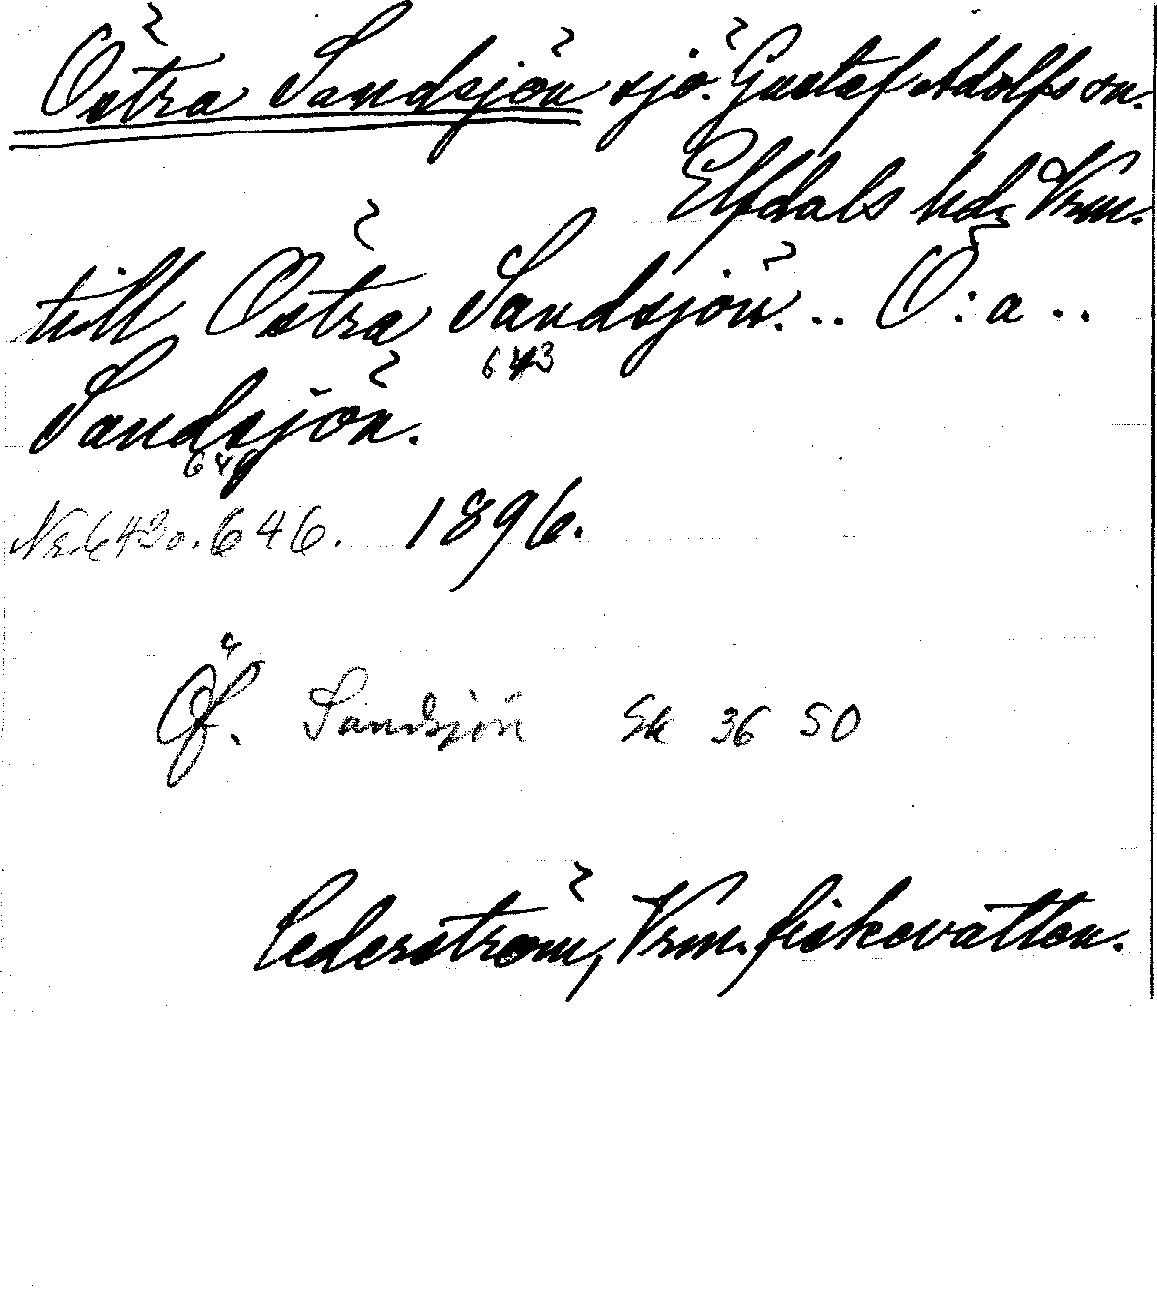 Östra Sandsjön sjö. Gustaf Adolfs sn.
Elfdals hd, Vrm.
till Östra Sandsjön... Ö:a..
643
Sandsjön.
646
Nr 643 o. 646. 1896.
Öf. Sandsjön Ek 36 50
Cederström, Vrm. fiskevatten.